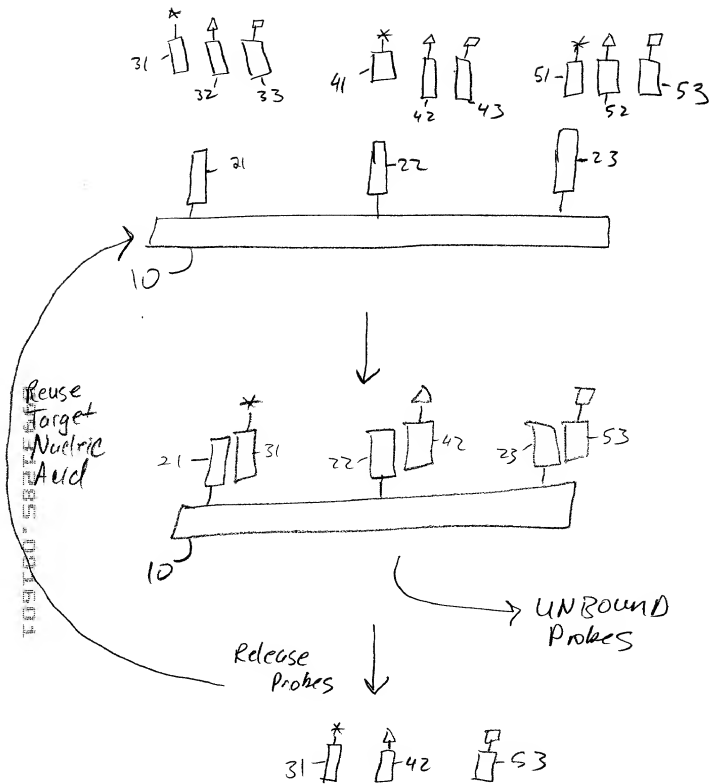 31 32 33
41 42 43
51 52 53
21 22 23
10
Reuse
Target
Nucleic
Acid
21 31 22 42 23 53
10
UNBOUND
Probes
Release
Probes
31 42 53